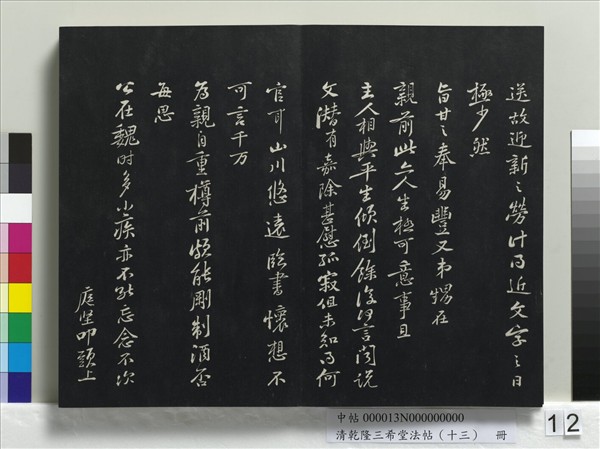 送故迎新之勞計得近文字之日
極少然
旨甘之奉易豐又弟甥在
親前此亦人生極可意事且
主人相與平生傾倒餘復何言聞說
文潛有嘉除甚慰孤寂但未知得何
官耳山川悠遠臨書懷想不
可言千万
為親自重樽前頗能剛制酒否
每思
公在魏時多小疾亦不能忘念不次
庭堅叩頭上
中帖 000013N000000000
清乾隆三希堂法帖（十三） 冊
12